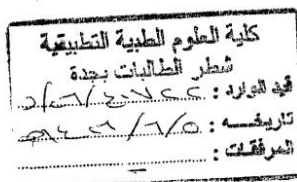 كلية العلوم الطبية التطبيقية
شطر الطالبات بجدة
قيد الوارد :
تاريخه : ١٤٣٦/٦/٥هـ
المرفقات :